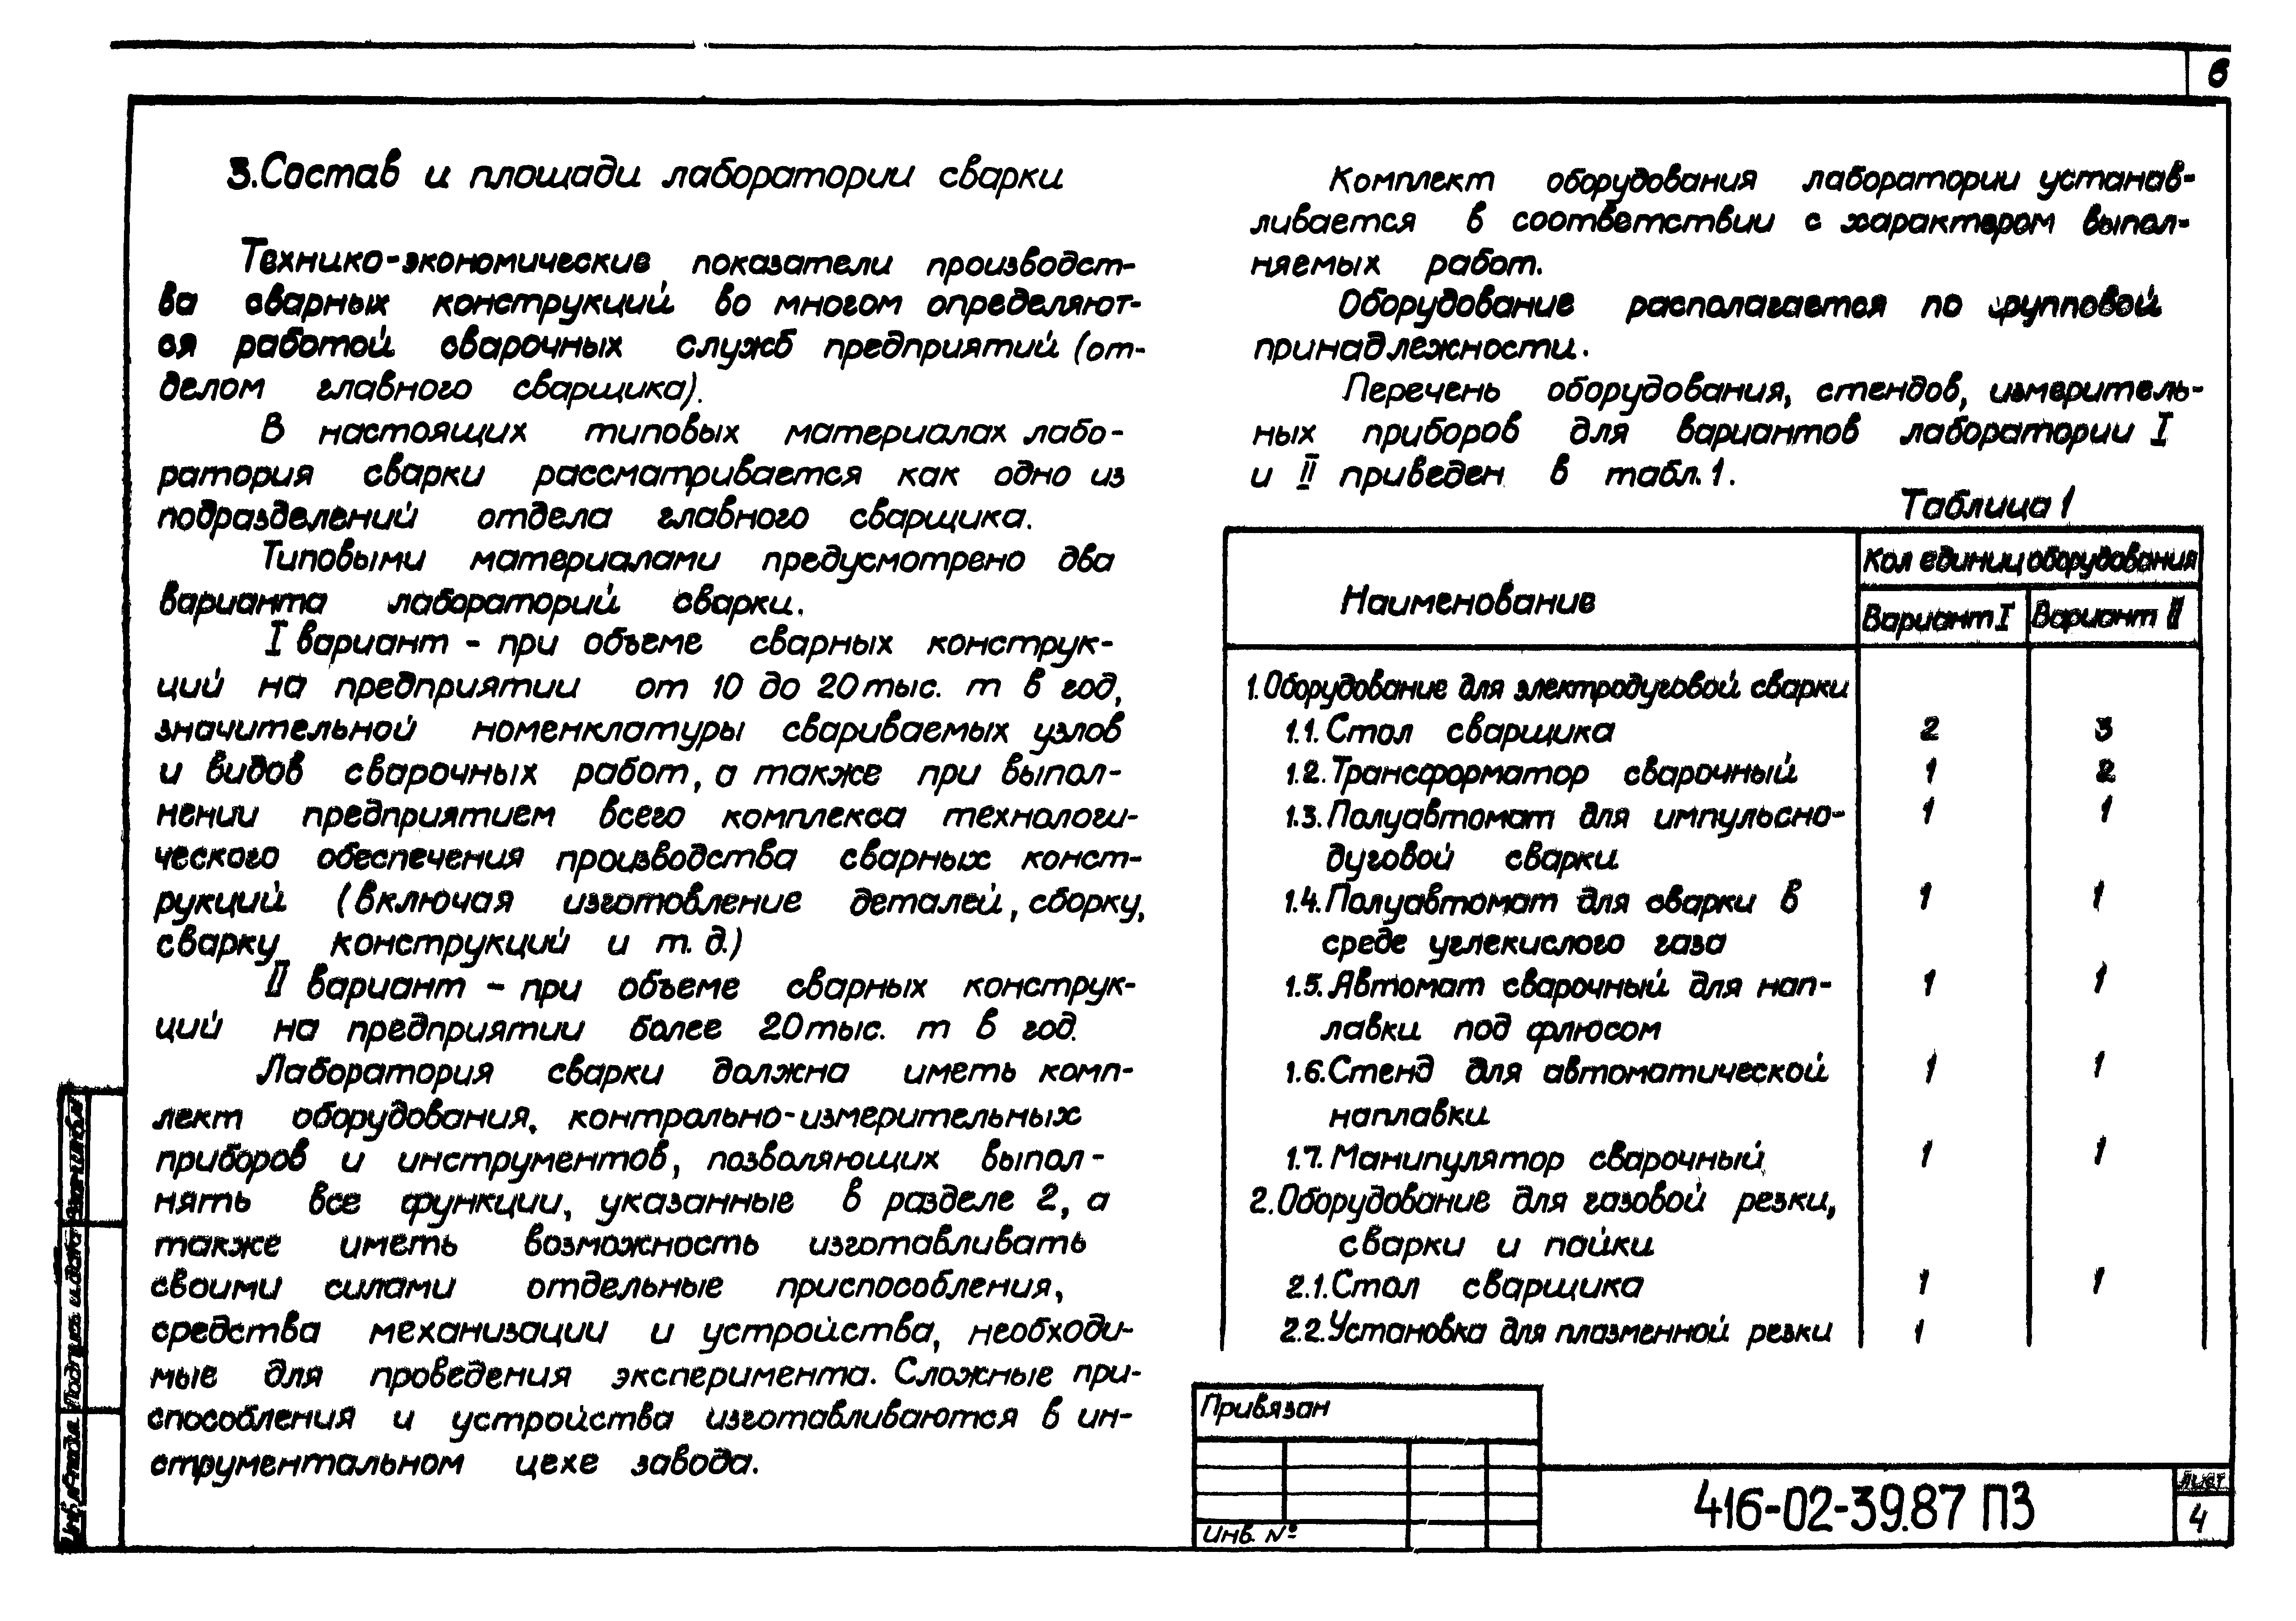 6
3.Состав и площади лаборатории сварки
Технико-экономические показатели производст-
ва сварных конструкций во многом определяют-
ся работой сварочных служб предприятий (от-
делом главного сварщика).
В настоящих типовых материалах лабо-
ратория сварки рассматривается как одно из
подразделений отдела главного сварщика.
Типовыми материалами предусмотрено два
варианта лабораторий сварки.
I вариант - при объеме сварных конструк-
ций на предприятии от 10 до 20 тыс. т в год,
значительной номенклатуры свариваемых узлов
и видов сварочных работ, а также при выпол-
нении предприятием всего комплекса технологи-
ческого обеспечения производства сварных конст-
рукций (включая изготовление деталей, сборку,
сварку конструкций и т. д.)
II вариант - при объеме сварных конструк-
ций на предприятии более 20 тыс. т в год.
Лаборатория сварки должна иметь комп-
лект оборудования, контрольно-измерительных
приборов и инструментов, позволяющих выпол-
нять все функции, указанные в разделе 2, а
также иметь возможность изготавливать
своими силами отдельные приспособления,
средства механизации и устройства, необходи-
мые для проведения эксперимента. Сложные при-
способления и устройства изготавливаются в ин-
струментальном цехе завода.
Комплект оборудования лаборатории устанав-
ливается в соответствии с характером выпол-
няемых работ.
Оборудование располагается по групповой
принадлежности.
Перечень оборудования, стендов, измеритель-
ных приборов для вариантов лаборатории I
и II приведен в табл. 1.
Таблица 1
Наименование
Кол единиц оборудования
Вариант I Вариант II
1. Оборудование для электродуговой сварки
1.1. Стол сварщика 2 3
1.2. Трансформатор сварочный 1 2
1.3. Полуавтомат для импульсно- 1 1
дуговой сварки
1.4. Полуавтомат для сварки в 1 1
среде углекислого газа
1.5. Автомат сварочный для нап- 1 1
лавки под флюсом
1.6. Стенд для автоматической 1 1
наплавки
1.7. Манипулятор сварочный 1 1
2. Оборудование для газовой резки,
сварки и пайки
2.1. Стол сварщика 1 1
2.2. Установка для плазменной резки 1
Привязан
Инв. №
416-02-39.87 ПЗ
Лист
4
Инв. № подл. Подпись и дата